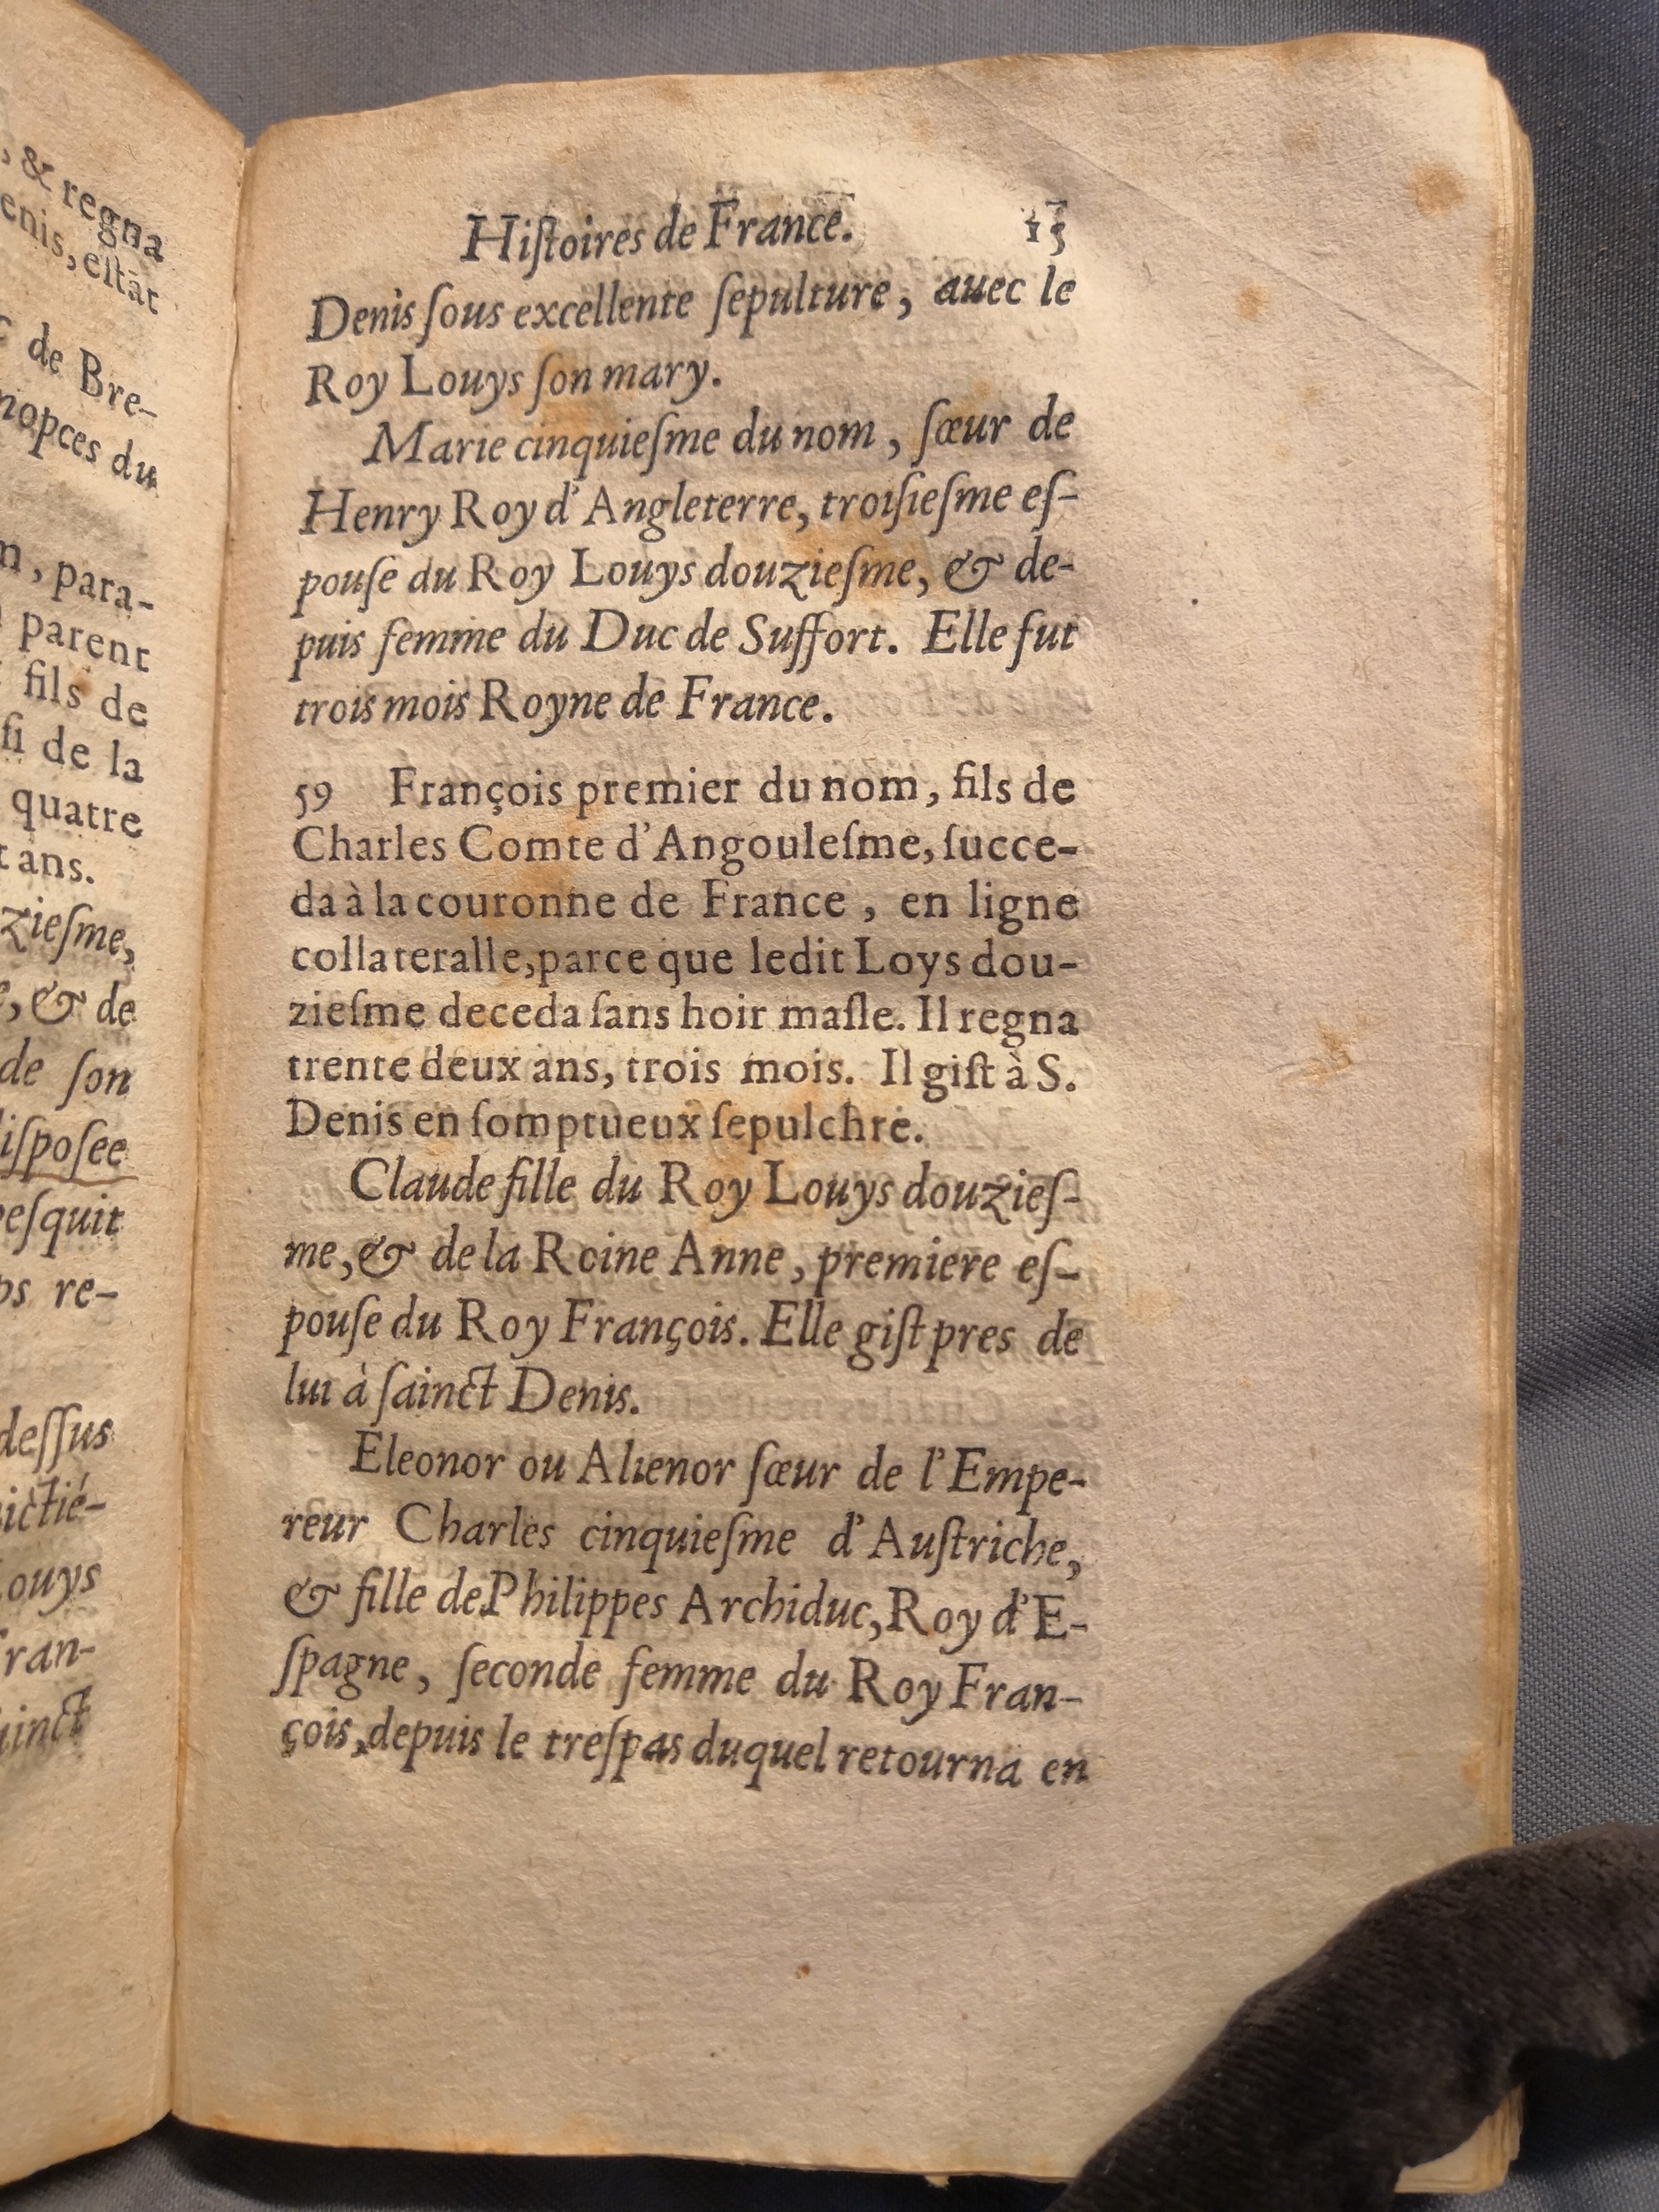 , & regna
enis, estāt
de Bre-
nopces du
n, para-
parent
fils de
si de la
quatre
t ans.
ziesme,
, & de
de son
isposee
esquit
ps re-
dessus
ictié-
ouys
ran-
inct
Hiſtoires de France. 15
Denis ſous excellente ſepulture, auec le
Roy Louys ſon mary.
Marie cinquieſme du nom, ſœur de
Henry Roy d'Angleterre, troiſieſme eſ-
pouſe du Roy Louys douzieſme, & de-
puis femme du Duc de Suffort. Elle fut
trois mois Royne de France.
59 François premier du nom, fils de
Charles Comte d'Angouleſme, ſucce-
da à la couronne de France, en ligne
collateralle, parce que ledit Loys dou-
zieſme deceda ſans hoir maſle. Il regna
trente deux ans, trois mois. Il giſt à S.
Denis en ſomptueux ſepulchre.
Claude fille du Roy Louys douzieſ-
me, & de la Roine Anne, premiere eſ-
pouſe du Roy François. Elle giſt pres de
lui à ſainct Denis.
Eleonor ou Alienor ſœur de l'Empe-
reur Charles cinquieſme d'Auſtriche,
& fille de Philippes Archiduc, Roy d'E-
ſpagne, ſeconde femme du Roy Fran-
çois, depuis le treſpas duquel retourna en